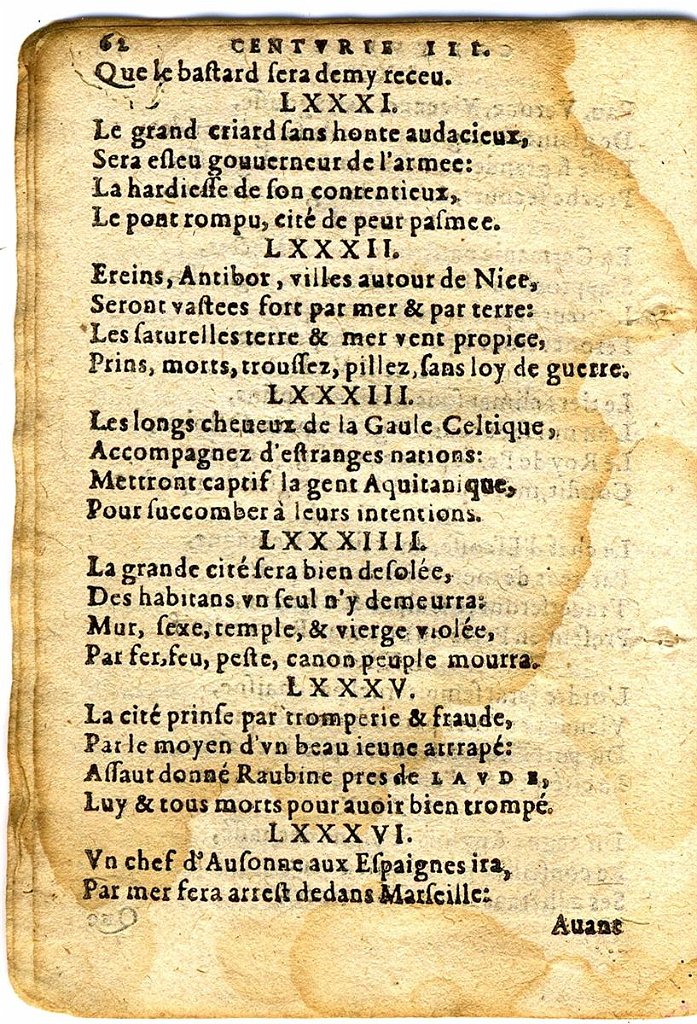 62 CENTVRIE III.
Que le baſtard ſera demy receu.
LXXXI.
Le grand criard ſans honte audacieux,
Sera eſleu gouuerneur de l'armee:
La hardieſſe de ſon contentieux,
Le pont rompu, cité de peur paſmee.
LXXXII.
Ereins, Antibor, villes autour de Nice,
Seront vaſtees fort par mer & par terre:
Les ſaturelles terre & mer vent propice,
Prins, morts, trouſſez, pillez, ſans loy de guerre.
LXXXIII.
Les longs cheueux de la Gaule Celtique,
Accompagnez d'eſtranges nations:
Mettront captif la gent Aquitanique,
Pour ſuccomber à leurs intentions.
LXXXIIII.
La grande cité ſera bien deſolée,
Des habitans vn ſeul n'y demeurra:
Mur, ſexe, temple, & vierge violée,
Par fer, feu, peſte, canon peuple mourra.
LXXXV.
La cité prinſe par tromperie & fraude,
Par le moyen d'vn beau ieune attrapé:
Aſſaut donné Raubine pres de LAVDE,
Luy & tous morts pour auoir bien trompé.
LXXXVI.
Vn chef d'Auſonne aux Eſpaignes ira,
Par mer fera arreſt dedans Marſeille:
Auant